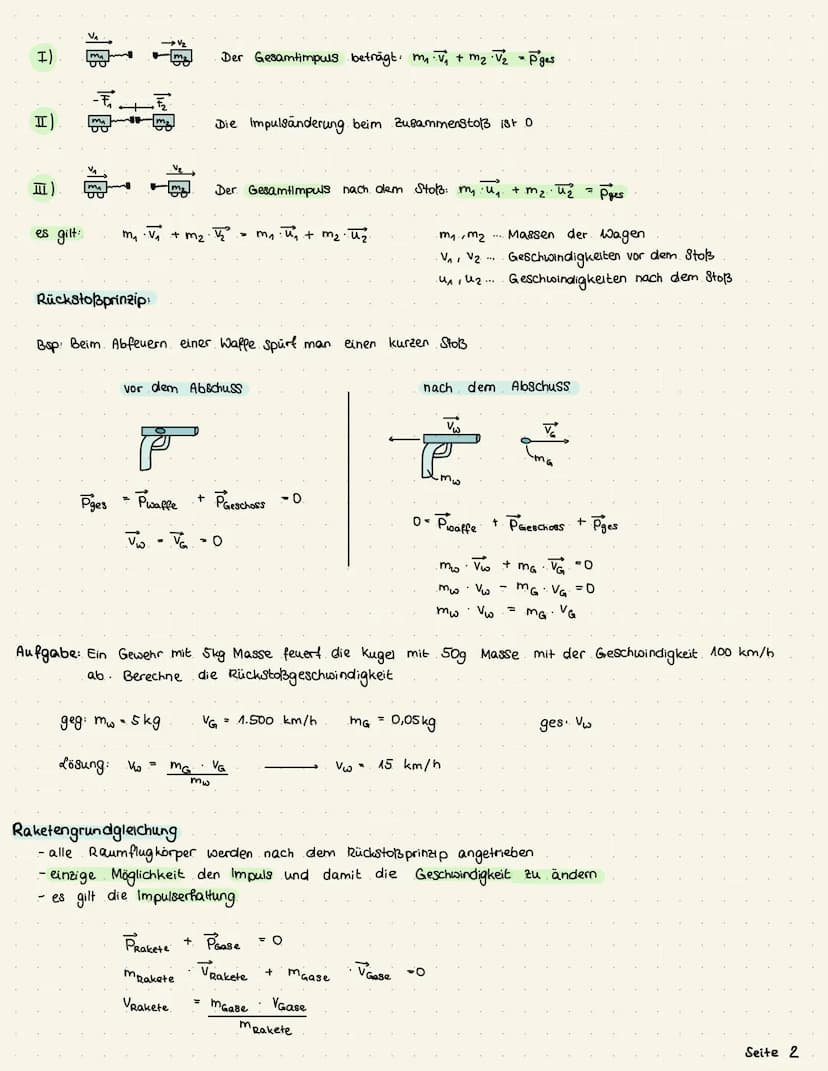 I) v₁ v₂ m₁ m₂ Der Gesamtimpuls beträgt: m₁·v₁ + m₂·v₂ = pges
II) -F₁ F₂ m₁ m₂ Die Impulsänderung beim Zusammenstoß ist 0
III) v₁ v₂ m₁ m₂ Der Gesamtimpuls nach dem Stoß: m₁·u₁ + m₂·u₂ = pges
es gilt: m₁·v₁ + m₂·v₂ = m₁·u₁ + m₂·u₂ m₁,m₂ ... Massen der Wagen
v₁, v₂ ... Geschwindigkeiten vor dem Stoß
u₁, u₂ ... Geschwindigkeiten nach dem Stoß
Rückstoßprinzip:
Bsp: Beim Abfeuern einer Waffe spürt man einen kurzen Stoß
vor dem Abschuss
pges = pWaffe + pGeschoss = 0
vW = vG = 0
nach dem Abschuss
vW vG
mG
mW
0 = pWaffe + pGeschoss + pges
mW · vW + mG · vG = 0
mW · vW - mG · vG = 0
mW · vW = mG · vG
Aufgabe: Ein Gewehr mit 5kg Masse feuert die Kugel mit 50g Masse mit der Geschwindigkeit 100 km/h
ab. Berechne die Rückstoßgeschwindigkeit
geg: mW = 5 kg vG = 1.500 km/h mG = 0,05kg ges: vW
Lösung: vW = mG · vG / mW → vW = 15 km/h
Raketengrundgleichung
- alle Raumflugkörper werden nach dem Rückstoßprinzip angetrieben
- einzige Möglichkeit den Impuls und damit die Geschwindigkeit zu ändern
- es gilt die Impulserhaltung
pRakete + pGase = 0
mRakete · vRakete + mGase · vGase = 0
vRakete = mGase · vGase
mRakete
Seite 2